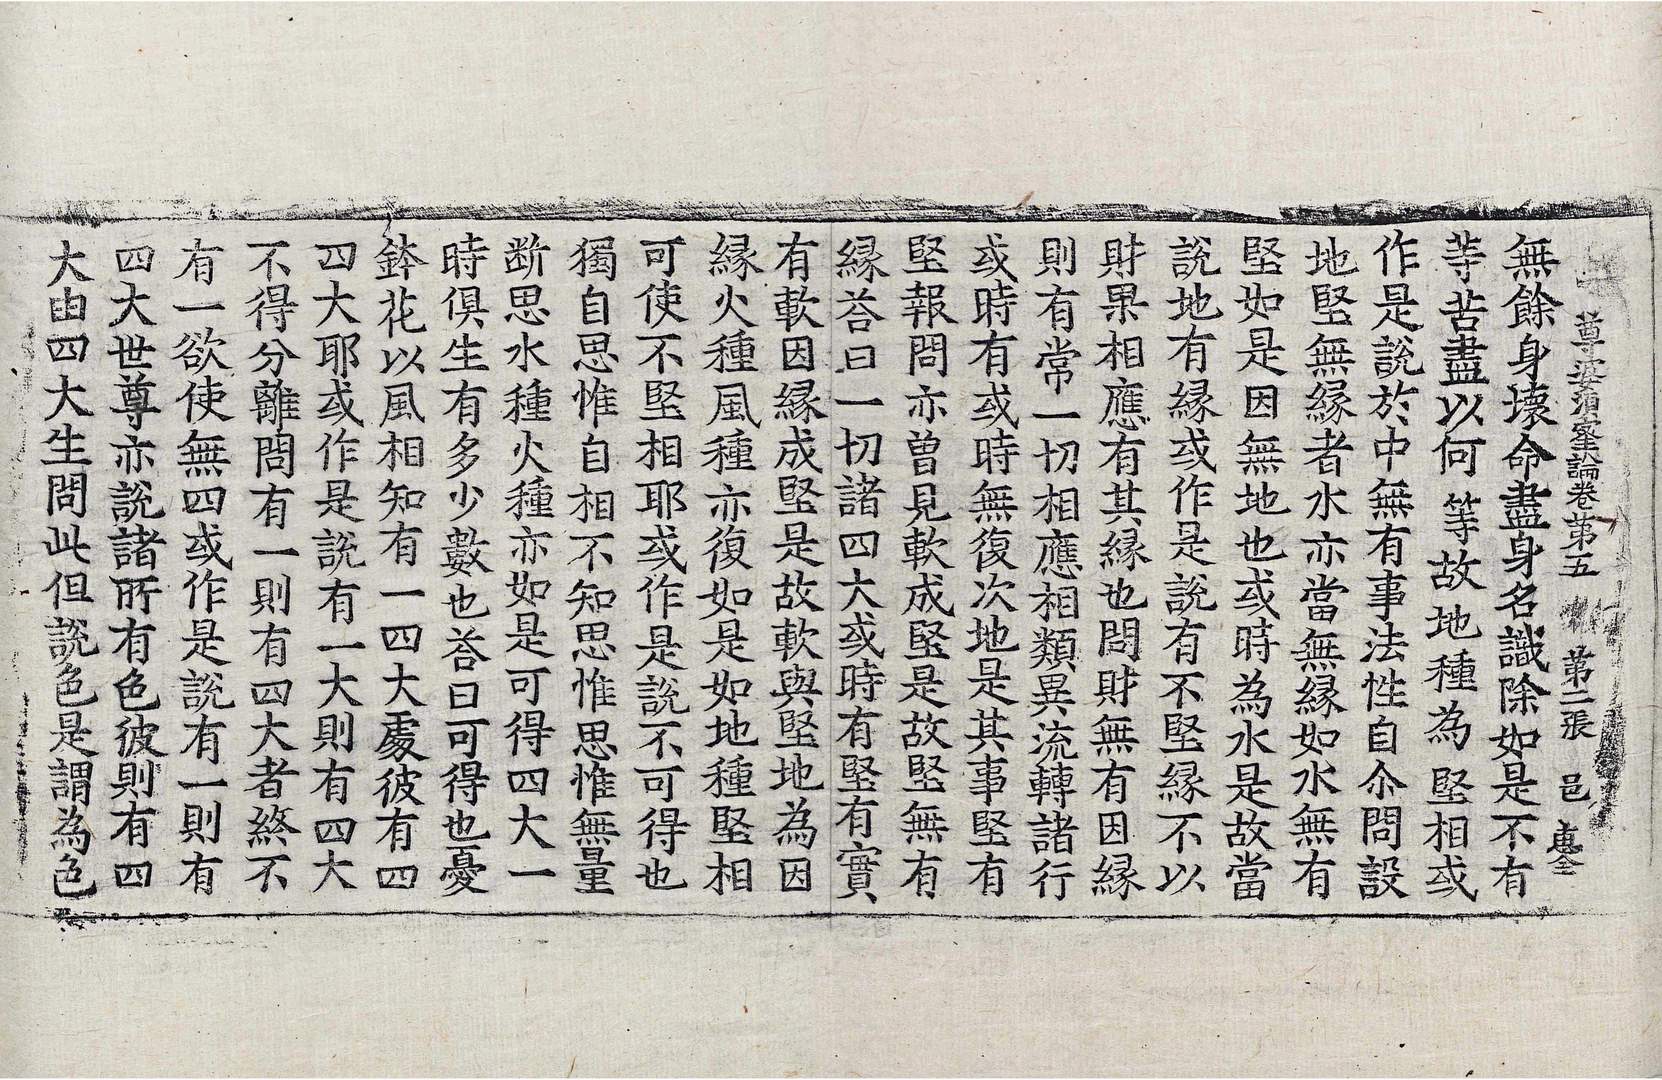 尊婆須蜜論卷第五 第二張 邑
無餘身壞命盡身名識除如是不有
等苦盡以何等故地種為堅相或
作是說於中無有事法性自尒問設
地堅無緣者水亦當無緣如水無有
堅如是因無地也或時為水是故當
說地有緣或作是說有不堅緣不以
財果相應有其緣也問財無有因緣
則有常一切相應相類異流轉諸行
或時有或時無復次地是其事堅有
堅報問亦曾見軟成堅是故堅無有
緣荅曰一切諸四大或時有堅有實
有軟因緣成堅是故軟與堅地為因
緣火種風種亦復如是如地種堅相
可使不堅相耶或作是說不可得也
獨自思惟自相不知思惟思惟無量
断思水種火種亦如是可得四大一
時俱生有多少數也荅曰可得也憂
鉢花以風相知有一四大處彼有四
四大耶或作是說有一大則有四大
不得分離問有一則有四大者終不
有一欲使無四或作是說有一則有
四大世尊亦說諸所有色彼則有四
大由四大生問此但說色是謂為色